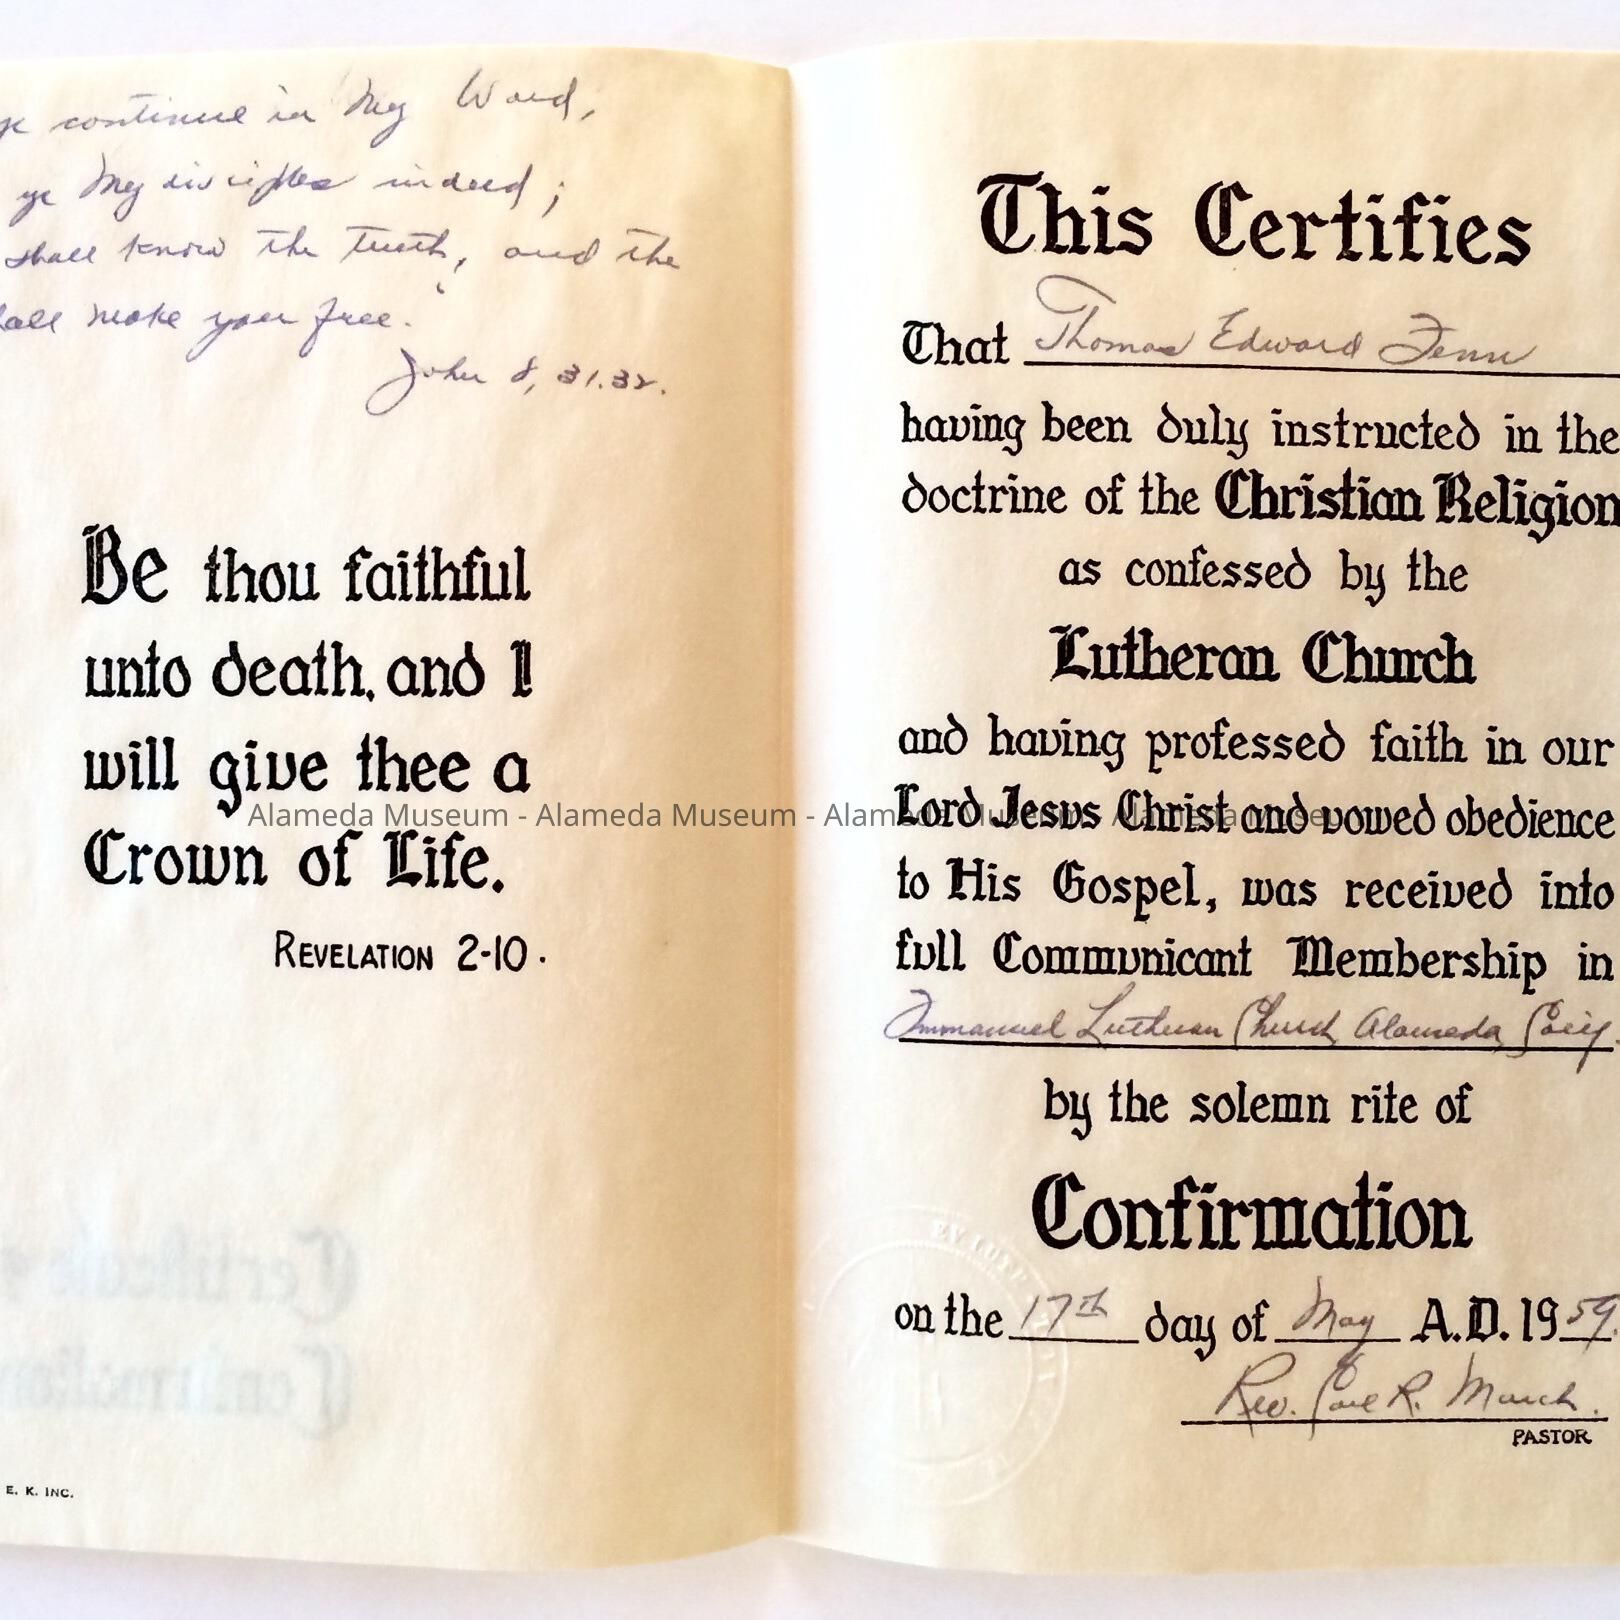 ye continue in My Word,
ye My disciples indeed;
shall know the truth, and the
shall make you free.
John 8, 31.32.
Be thou faithful
unto death, and I
will give thee a
Crown of Life.
REVELATION 2-10.
E. K. INC.
This Certifies
That Thomas Edward Fenn
having been duly instructed in the
doctrine of the Christian Religion
as confessed by the
Lutheran Church
and having professed faith in our
Lord Jesus Christ and vowed obedience
to His Gospel, was received into
full Communicant Membership in
Immanuel Lutheran Church, Alameda, Calif.
by the solemn rite of
Confirmation
on the 17th day of May A.D. 1959.
Rev. Carl R. March.
PASTOR
EV. LUTH.
Certificate
Confirmation
Alameda Museum - Alameda Museum - Alameda Museum - Alameda Museum